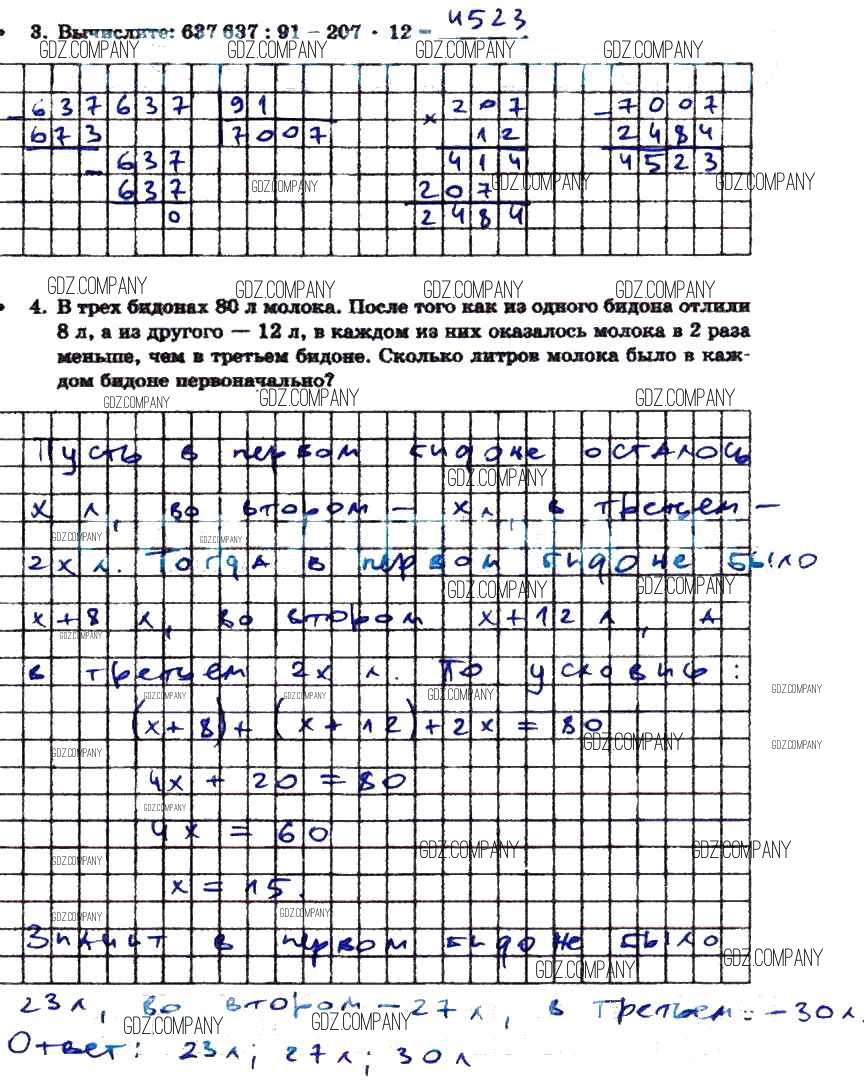 3. Вычислите: 637 637 : 91 – 207 · 12 = 4523
GDZ.COMPANY GDZ.COMPANY GDZ.COMPANY GDZ.COMPANY
637637 91 × 207 – 7007
673 7007 12 2484
– 637 414 4523
637 GDZ.COMPANY 207 GDZ.COMPANY GDZ.COMPANY
0 2484
GDZ.COMPANY GDZ.COMPANY GDZ.COMPANY GDZ.COMPANY
4. В трех бидонах 80 л молока. После того как из одного бидона отлили
8 л, а из другого — 12 л, в каждом из них оказалось молока в 2 раза
меньше, чем в третьем бидоне. Сколько литров молока было в каж-
дом бидоне первоначально?
GDZ.COMPANY GDZ.COMPANY GDZ.COMPANY
Пусть в первом бидоне осталось
GDZ.COMPANY
х л, во втором – х л, в третьем –
GDZ.COMPANY GDZ.COMPANY
2х л. Тогда в первом бидоне было
GDZ.COMPANY GDZ.COMPANY
х + 8 л, во втором х + 12 л, а
GDZ.COMPANY
в третьем 2х л. По условию:
GDZ.COMPANY GDZ.COMPANY GDZ.COMPANY GDZ.COMPANY
(х + 8) + (х + 12) + 2х = 80
GDZ.COMPANY GDZ.COMPANY GDZ.COMPANY
4х + 20 = 80
GDZ.COMPANY
4х = 60
GDZ.COMPANY GDZ.COMPANY GDZ.COMPANY
х = 15.
GDZ.COMPANY GDZ.COMPANY
Значит в первом бидоне было
GDZ.COMPANY GDZ.COMPANY
23 л, во втором – 27 л, в третьем – 30 л.
GDZ.COMPANY GDZ.COMPANY
Ответ: 23 л; 27 л; 30 л